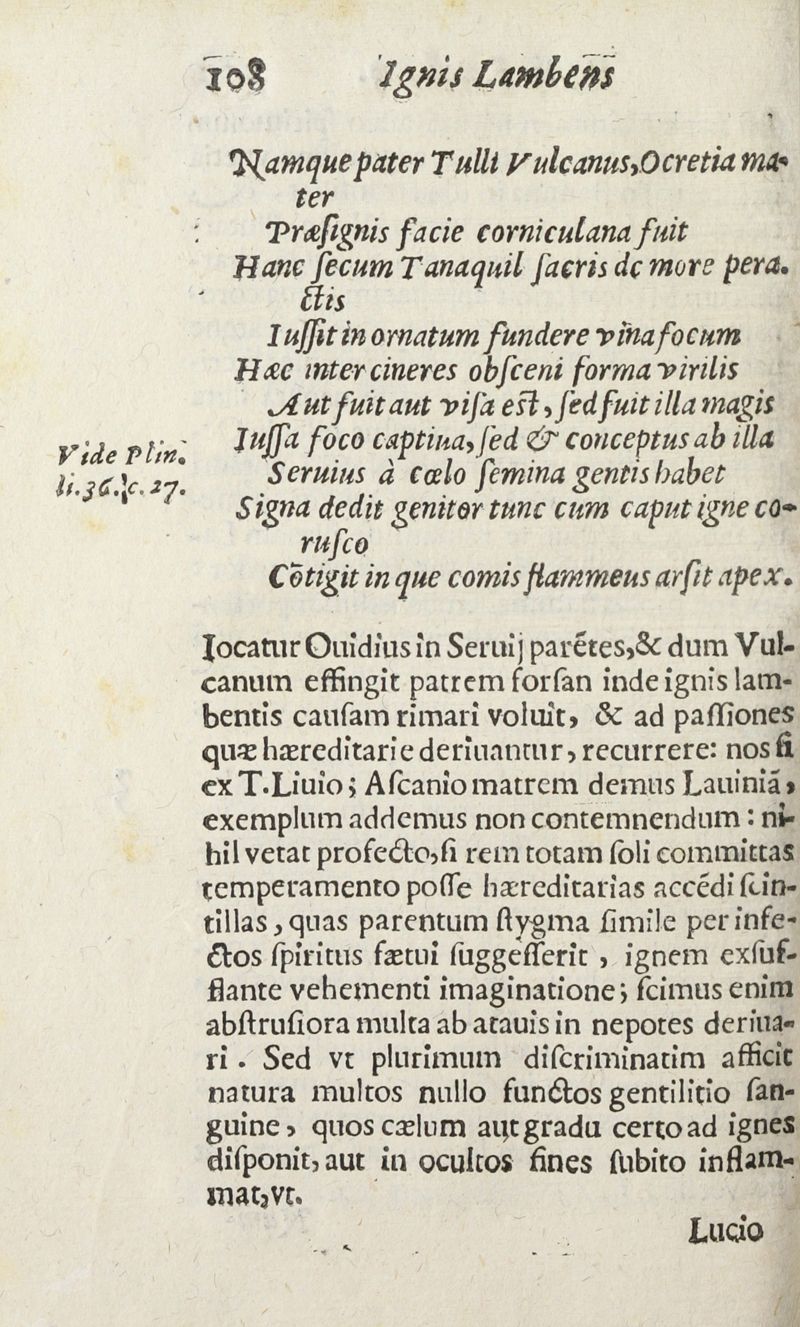 108 Ignis Lambens
Namque pater Tulli Vulcanus, Ocretia ma-
ter
Præsignis facie corniculana fuit
Hanc secum Tanaquil sacris de more pera.
ctis
Iussit in ornatum fundere vina focum
Hæc inter cineres obsceni forma virilis
Aut fuit aut visa est, sed fuit illa magis
Iussa foco captiua, sed & conceptus ab illa
Seruius à cœlo semina gentis habet
Signa dedit genitor tunc cum caput igne co-
rusco
Cōtigit in que comis flammeus arsit apex.
Vide Plin.
li.36.c.27.
Iocatur Ouidius in Seruij parētes, & dum Vul-
canum effingit patrem forsan inde ignis lam-
bentis causam rimari voluit, & ad passiones
quæ hæreditarie deriuantur, recurrere: nos si
ex T.Liuio; Ascanio matrem demus Lauiniā,
exemplum addemus non contemnendum: ni-
hil vetat profecto, si rem totam soli committas
temperamento posse hæreditarias accēdi scin-
tillas, quas parentum stygma simile per infe-
ctos spiritus fætui suggesserit, ignem exsuf-
flante vehementi imaginatione; scimus enim
abstrusiora multa ab atauis in nepotes deriua-
ri. Sed vt plurimum discriminatim afficit
natura multos nullo functos gentilitio san-
guine, quos cælum aut gradu certo ad ignes
disponit, aut in ocultos fines subito inflam-
mat, vt.
Lucio